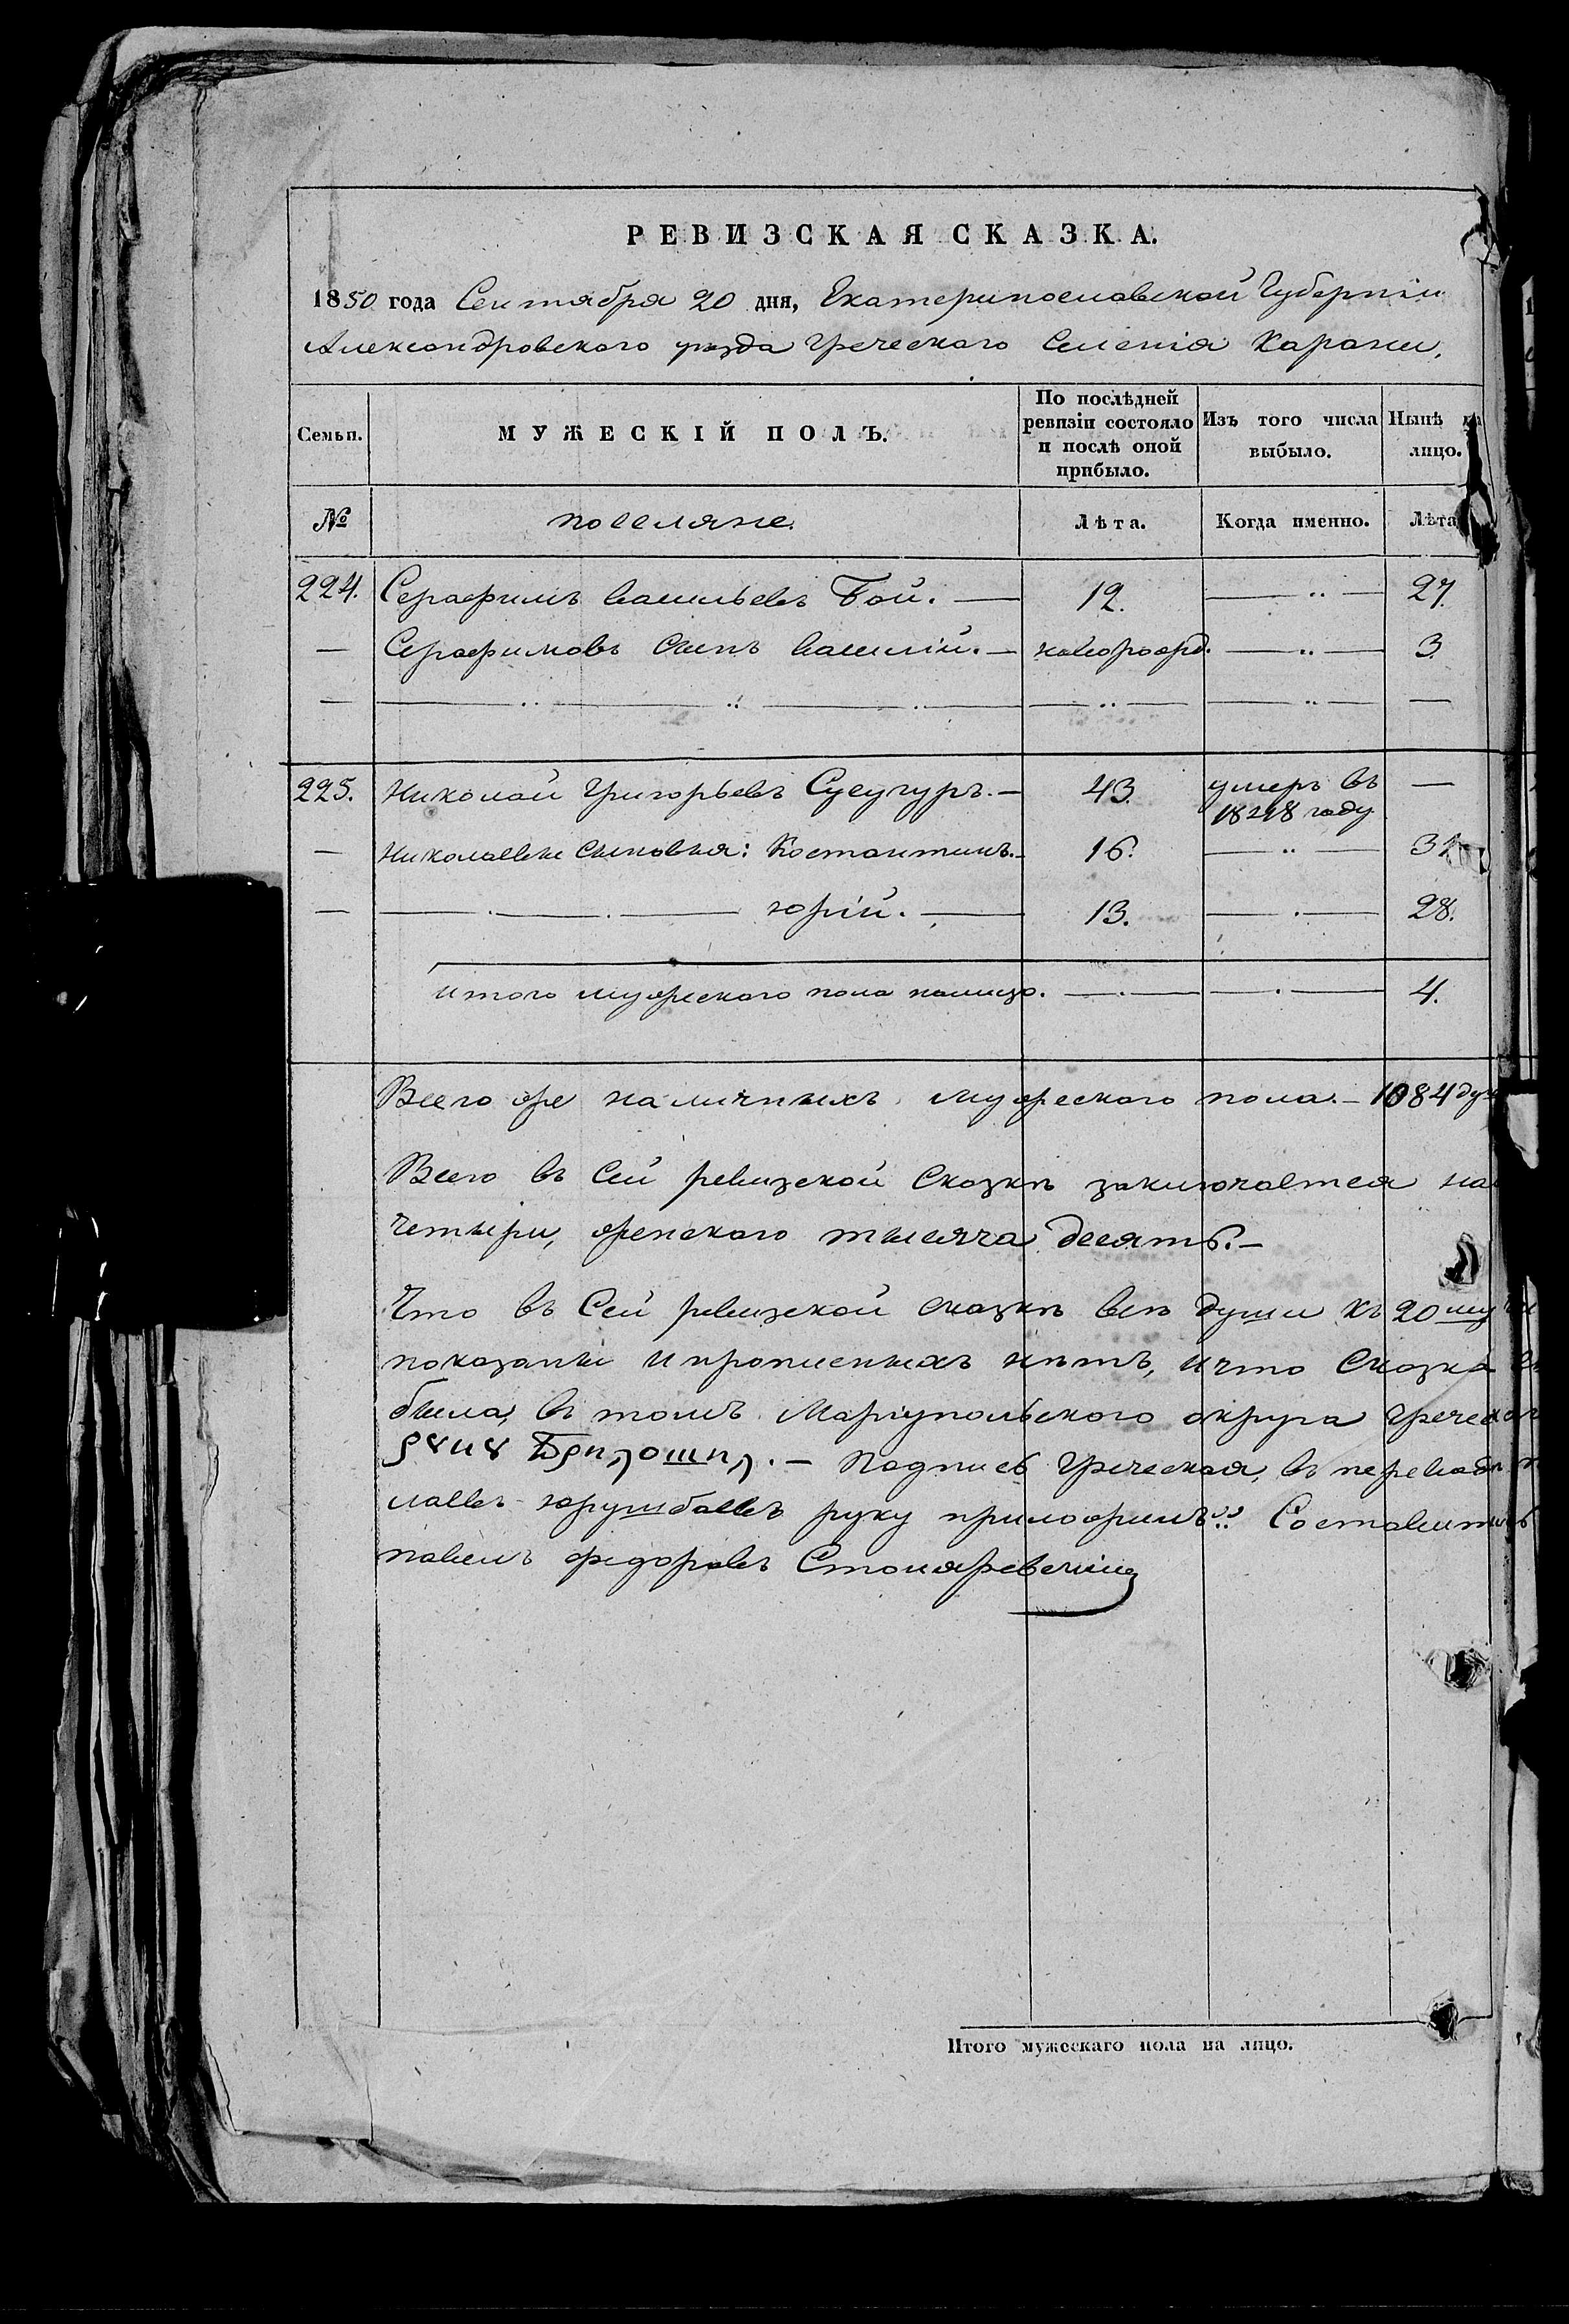 РЕВИЗСКАЯ СКАЗКА.
1850 года Сентября 20 дня, Екатеринославской Губерніи
Александровского уезда Греческого Селенія Карани.
Семьи. МУЖЕСКІЙ ПОЛЪ. По послѣдней ревизіи состояло и послѣ оной прибыло. Изъ того числа выбыло. Нынѣ на лицо.
№ поселяне. Лѣта. Когда именно. Лѣта
224. Серафимъ Васильевъ Бой. — 12. — 27.
— Серафимовъ Сынъ Василій. — новорожд. — 3.
225. Николай Григорьевъ Сусугуръ. — 43. умеръ въ 1848 году —
— Николаевы сыновья: Костантинъ. — 16. — 31
— Юрій. — 13. — 28.
итого мужеского пола налицо. — 4.
Всего же наличныхъ мужеского пола. — 1084 душ
Всего въ Сей ревизской Сказкѣ заключается на
четыри, женского тысяча десять. —
Что въ Сей ревизской сказкѣ всѣ души къ 20 му
показаны и прописныхъ нѣтъ, и что Сказка
была, въ томъ Маріупольского округа Греческ
Подпись Греческая, въ перевод
лаевъ Юрушбаевъ руку приложилъ: Составитель
павелъ федоровъ
Итого мужескаго пола на лицо.